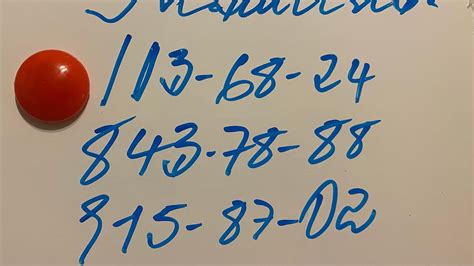 113-68-24
843-78-88
915-87-02